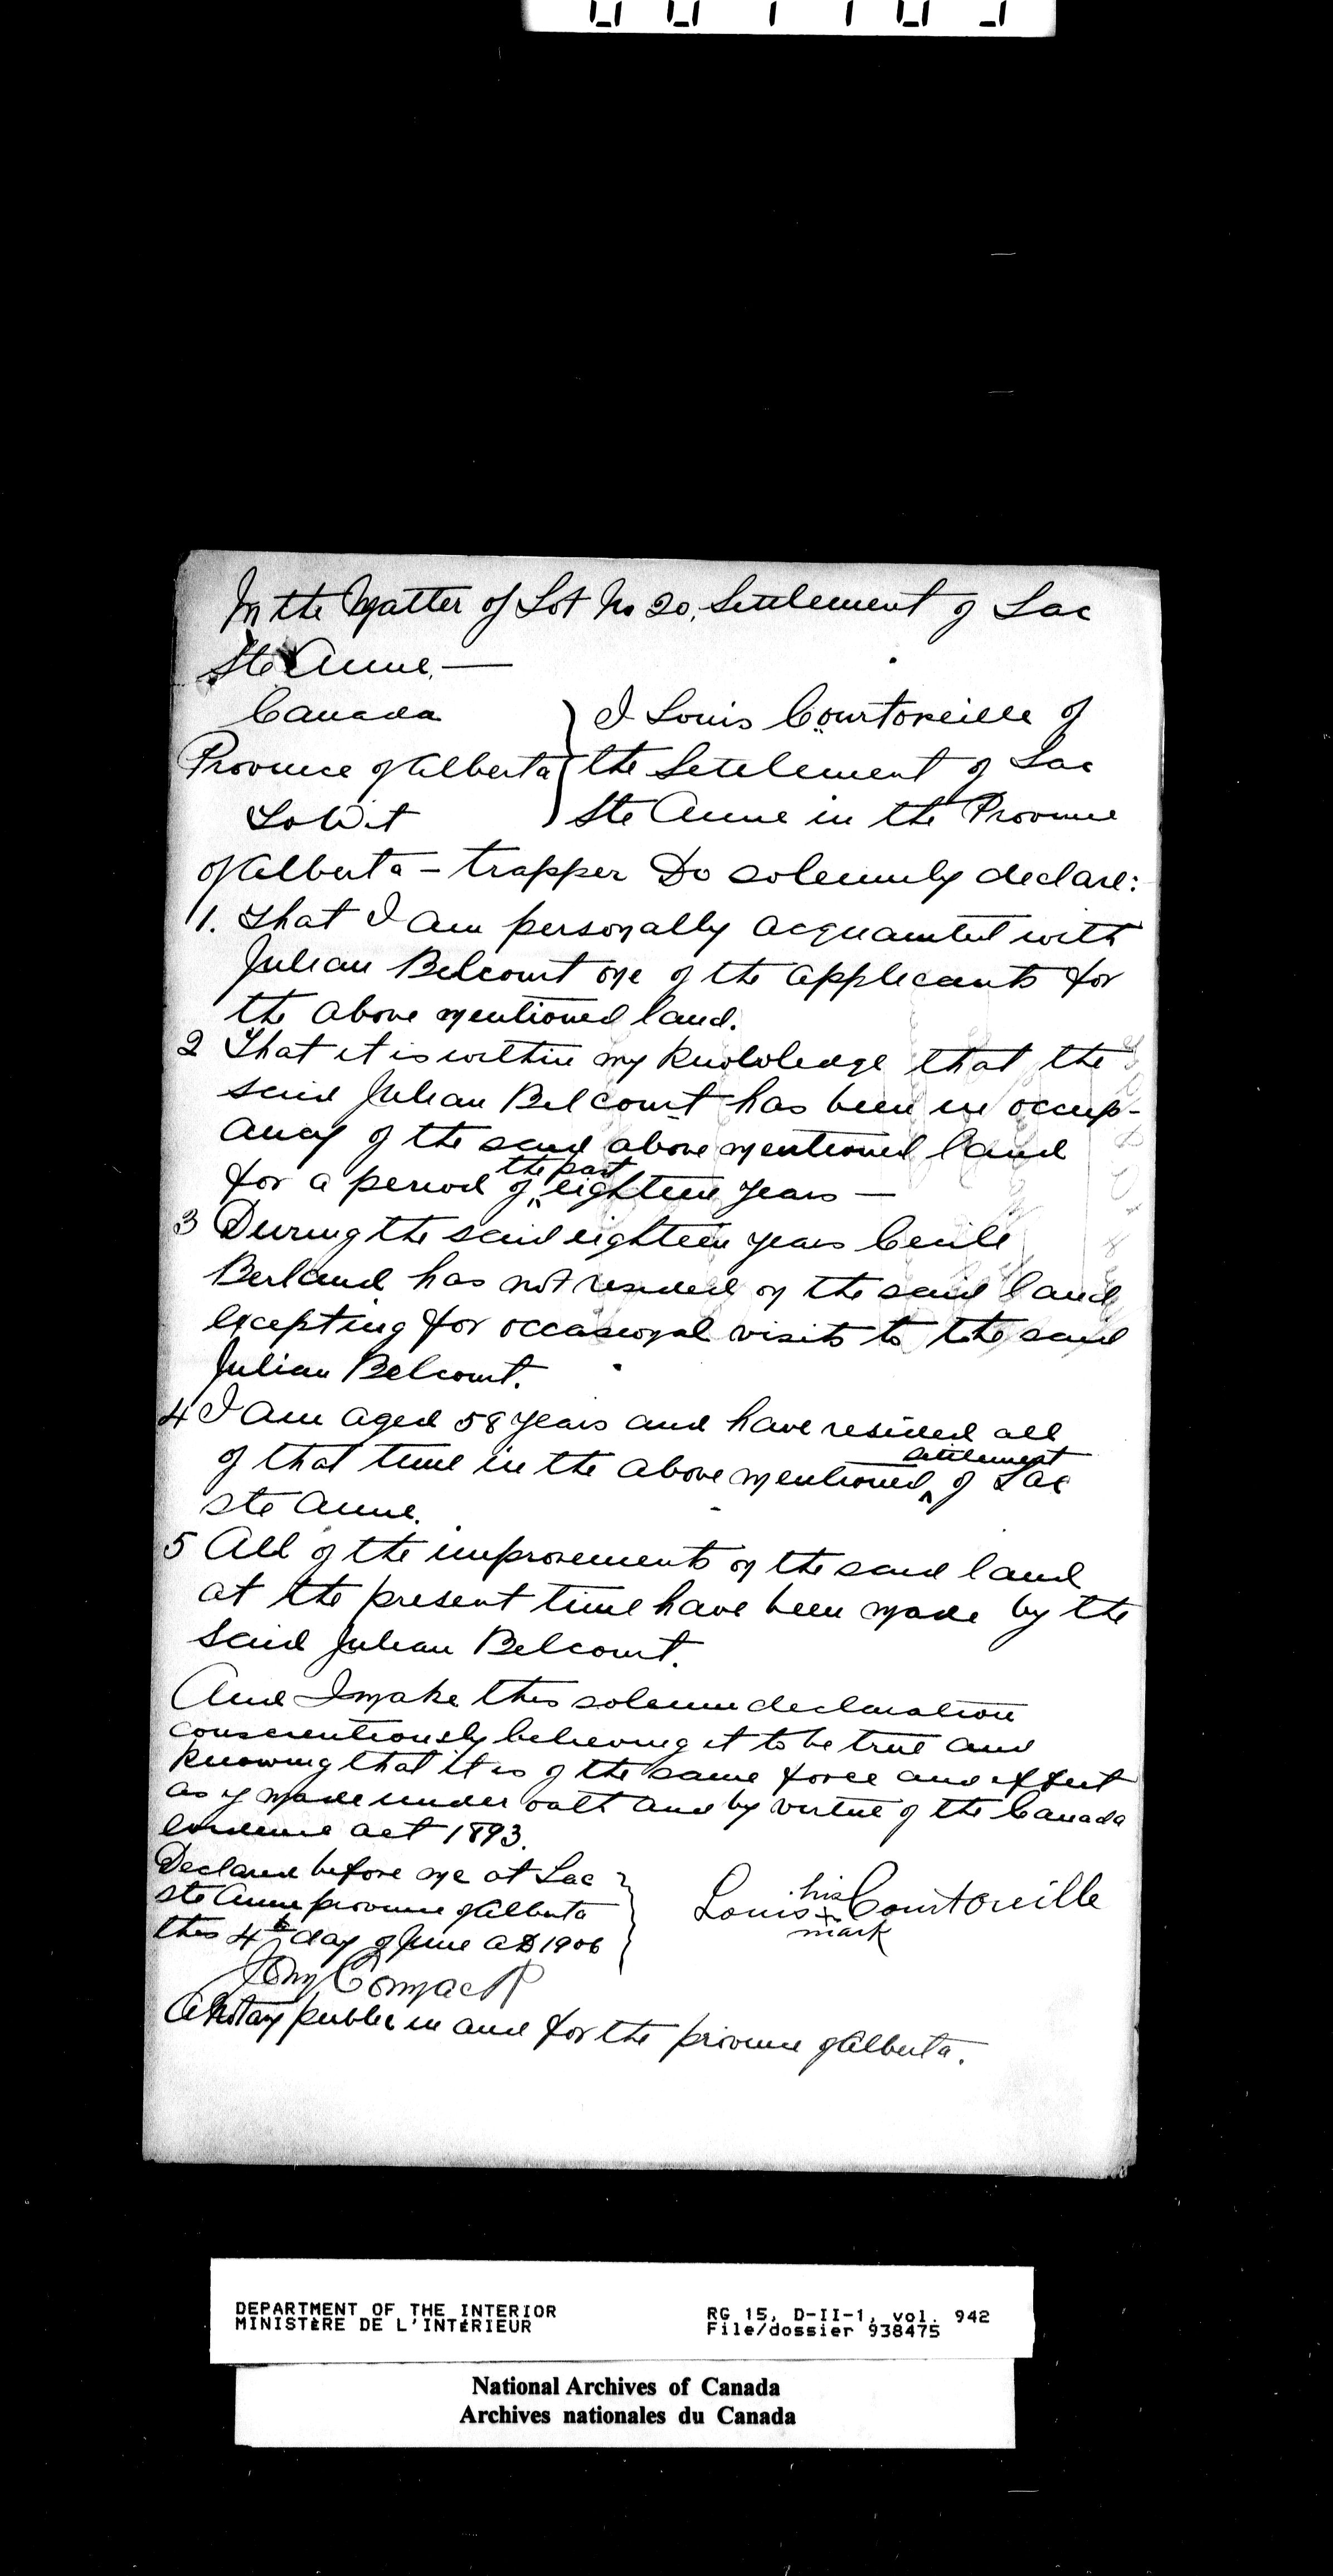 In the Matter of Lot No 20, Settlement of Lac
Ste Anne.—
Canada
Province of Alberta
To Wit
I Louis Courtoreille of
the Settlement of Lac
Ste Anne in the Province
of Alberta - trapper Do solemnly declare:
1. That I am personally acquainted with
Julian Belcourt one of the applicants for
the above mentioned land.
2 That it is within my knowledge that the
said Julian Belcourt has been in occup-
ancy of the said above mentioned land
for a period of the past eighteen years —
3 During the said eighteen years Cecile
Berland has not resided on the said land
excepting for occasional visits to the said
Julian Belcourt.
4 I am aged 58 years and have resided all
of that time in the above mentioned settlement of Lac
Ste Anne.
5 All of the improvements on the said land
at the present time have been made by the
said Julian Belcourt.
And I make this solemn declaration
conscientiously believing it to be true and
knowing that it is of the same force and effect
as if made under oath and by virtue of the Canada
evidence act 1893.
Declared before me at Lac
Ste Anne province of Alberta
this 4th day of June AD 1906
Louis his + mark Courtoreille
A Notary public in and for the province of Alberta.
DEPARTMENT OF THE INTERIOR
MINISTÈRE DE L'INTÉRIEUR
RG 15, D-II-1, vol. 942
File/dossier 938475
National Archives of Canada
Archives nationales du Canada